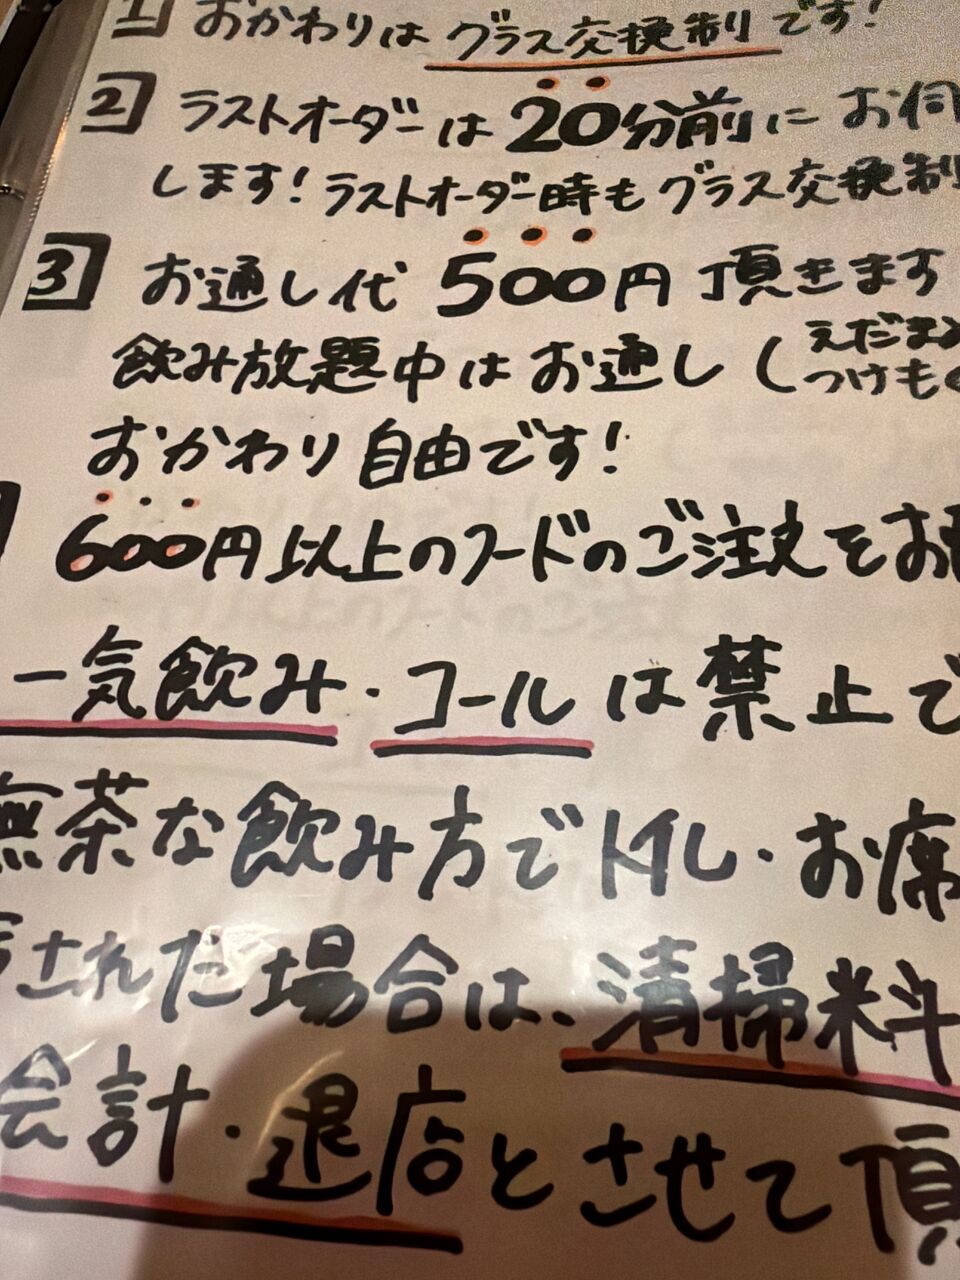 1 おかわりは グラス交換制です!
2 ラストオーダーは 20分前に お伺
します! ラストオーダー時も グラス交換制
3 お通し代 500円 頂きます
飲み放題中は お通し (えだまめ
つけもの
おかわり 自由です!
600円以上のフードのご注文をお
一気飲み・コールは禁止で
無茶な飲み方でトイレ・お席
された場合は、清掃料
会計・退店とさせて頂